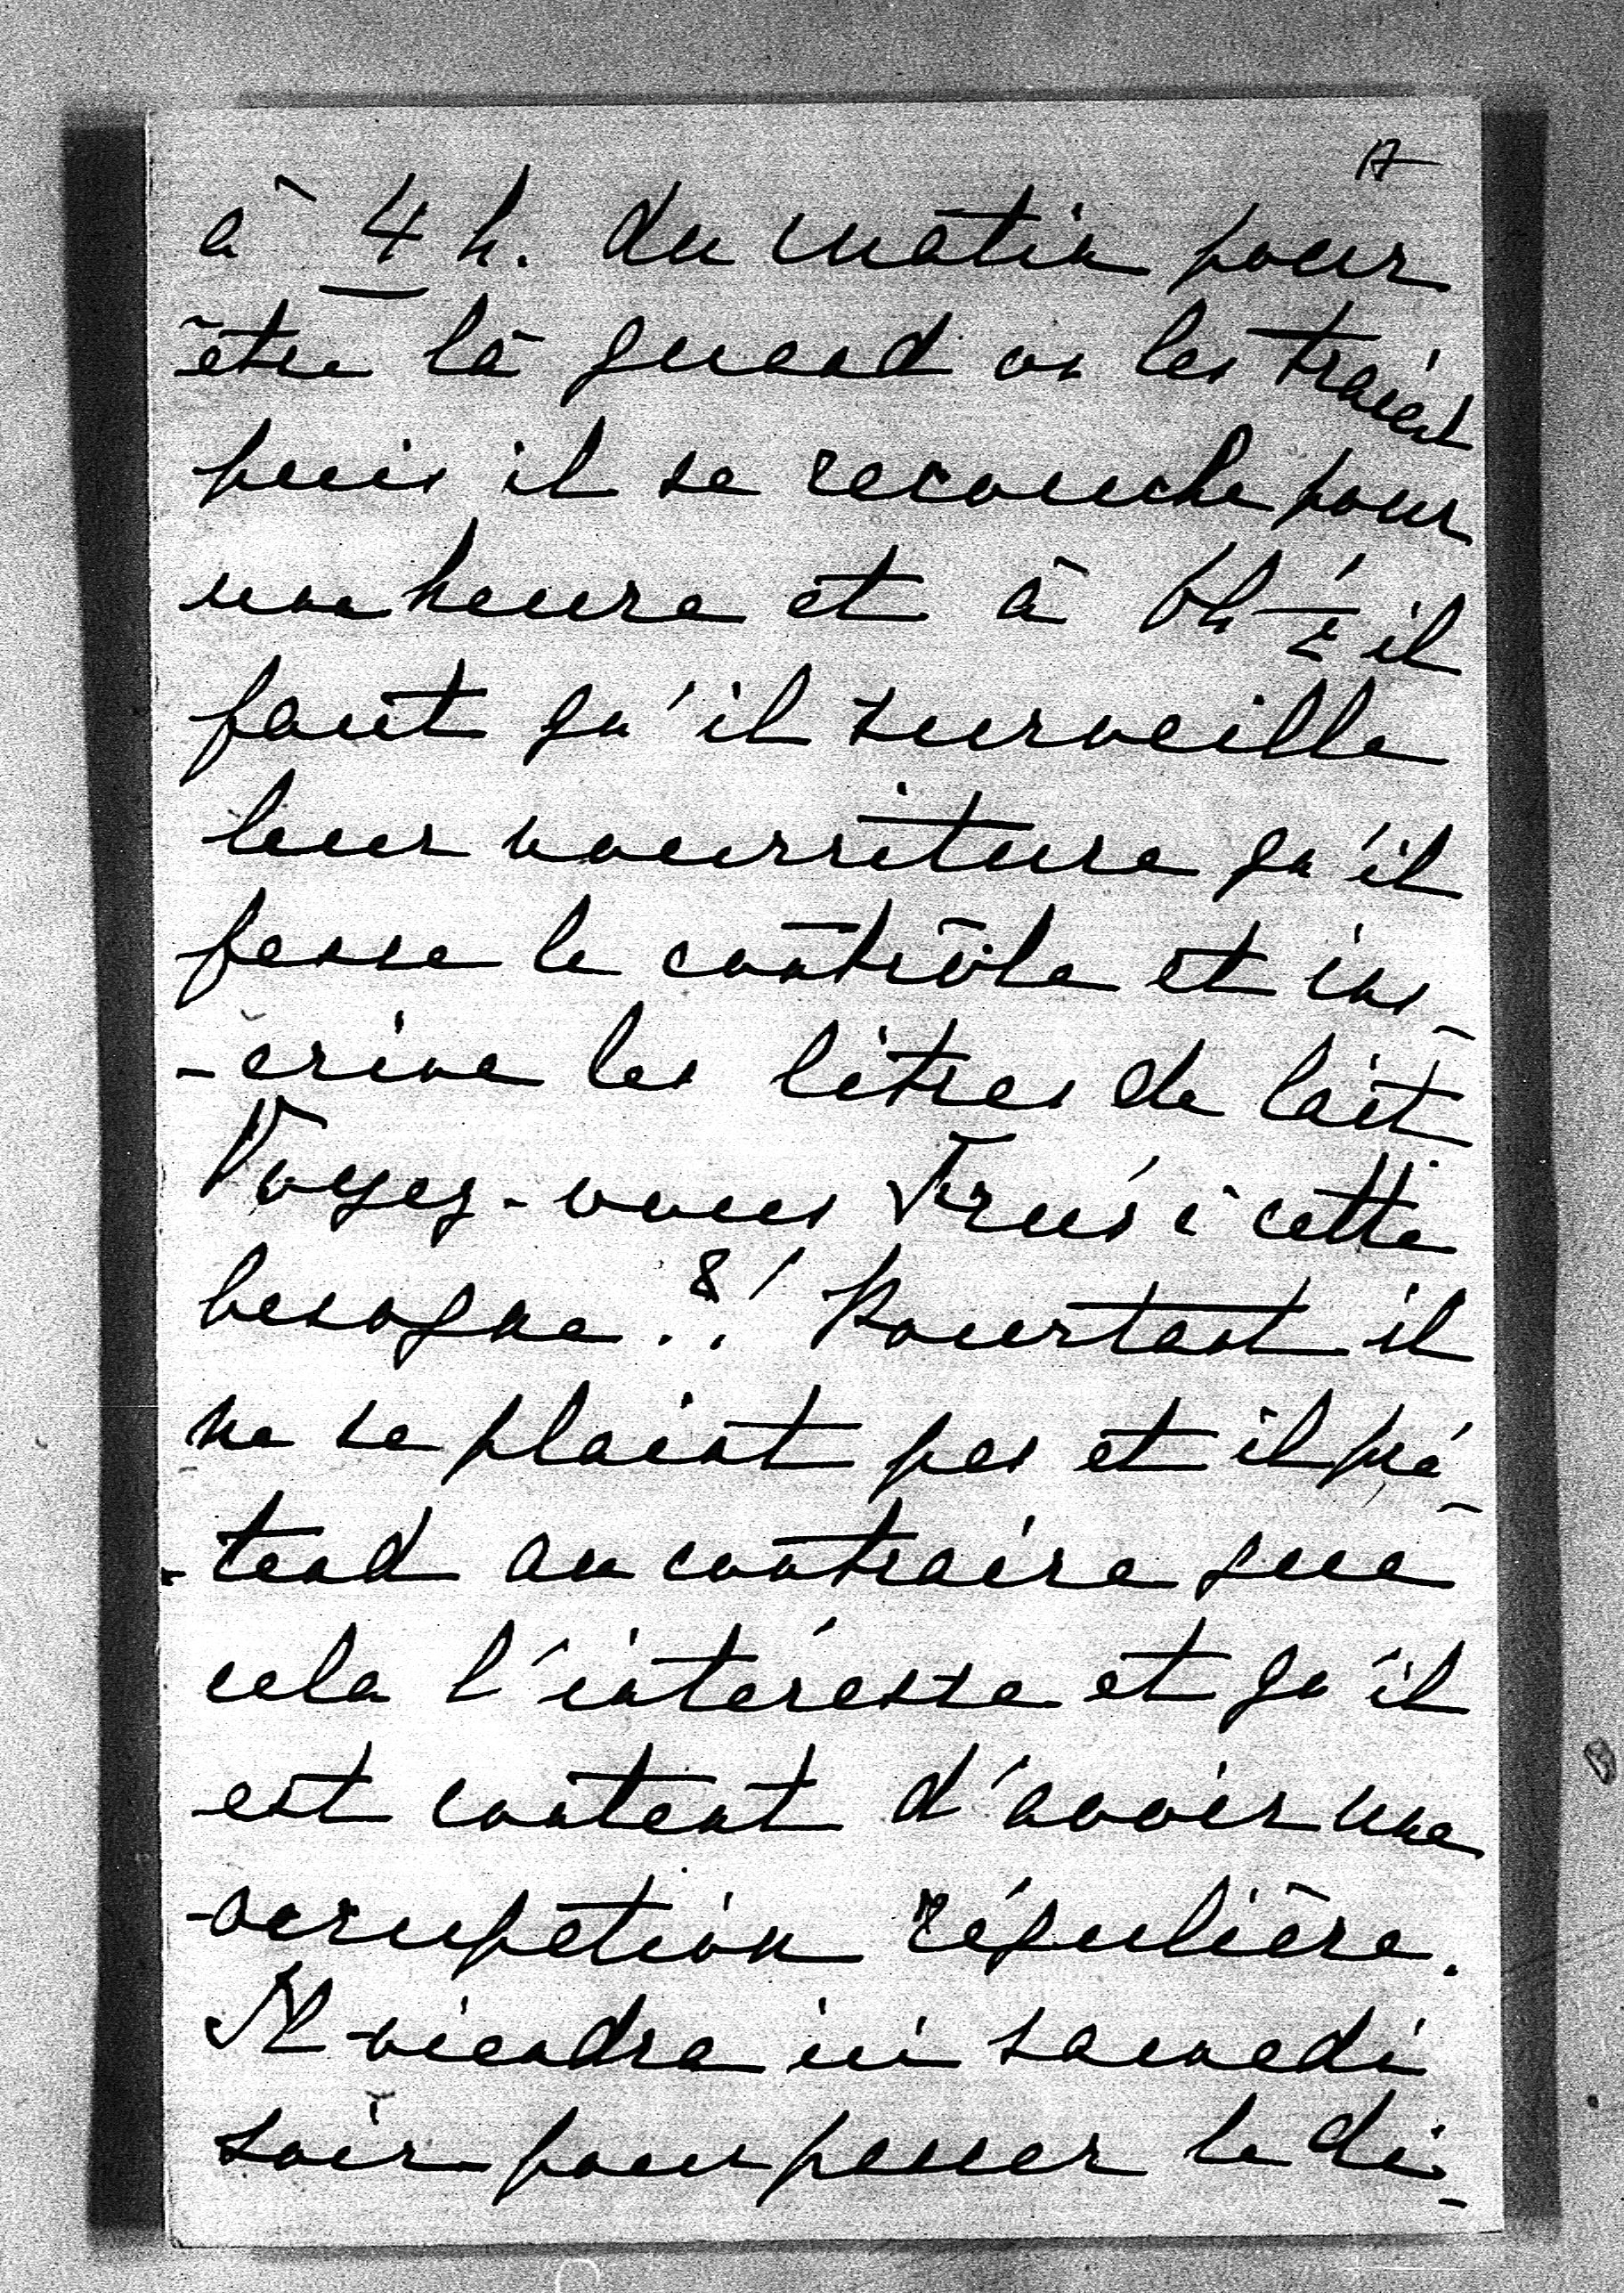 17
à 4 h. du matin pour
être là quand on les traient
puis il se recouche pour
une heure et à 6h 1/2 il
faut qu'il surveille
leur nourriture qu'il
fasse le contrôle et ins-
-crive les litres de lait
Voyez-vous à cette
besogne ?! Pourtant il
ne se plaint pas et il pré-
-tend au contraire que
cela l'intéresse et qu'il
est content d'avoir une
occupation régulière.
Il viendra ici samedi
soir pour passer le di-